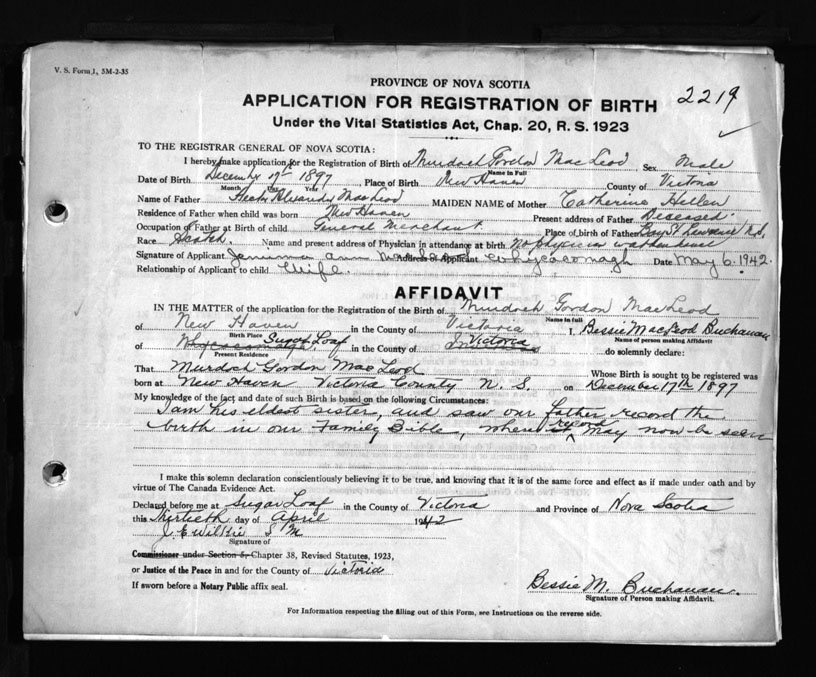 V. S. Form 1, 5M-2-35
PROVINCE OF NOVA SCOTIA
APPLICATION FOR REGISTRATION OF BIRTH 2219
Under the Vital Statistics Act, Chap. 20, R. S. 1923
TO THE REGISTRAR GENERAL OF NOVA SCOTIA:
I hereby make application for the Registration of Birth of Murdoch Gordon MacLeod Sex Male
Name in Full
Date of Birth December 17th 1897 Place of Birth New Haven County of Victoria
Month Day Year
Name of Father Alexander MacLeod MAIDEN NAME of Mother Catherine Hellen
Residence of Father when child was born New Haven Present address of Father Deceased
Occupation of Father at Birth of child General Merchant Place of birth of Father Bay St Lawrence N.S.
Race Scotch. Name and present address of Physician in attendance at birth. No physician
Signature of Applicant Ann Address of Applicant Whycocomagh Date May 6. 1942.
Relationship of Applicant to child Wife.
AFFIDAVIT
IN THE MATTER of the application for the Registration of the Birth of Murdoch Gordon MacLeod
Name in full
of New Haven in the County of Victoria I, Bessie MacLeod Buchanan
Birth Place Name of person making Affidavit
of Sugar Loaf in the County of Victoria do solemnly declare:
Present Residence
That Murdoch Gordon MacLeod Whose Birth is sought to be registered was
born at New Haven Victoria County N. S. on December 17th 1897
My knowledge of the fact and date of such Birth is based on the following Circumstances:
I am his eldest sister, and saw our father record the
birth in our Family Bible, where record may now be seen
I make this solemn declaration conscientiously believing it to be true, and knowing that it is of the same force and effect as if made under oath and by
virtue of The Canada Evidence Act.
Declared before me at Sugar Loaf in the County of Victoria and Province of Nova Scotia
this Thirtieth day of April 1942
J E Wilkie S M
Signature of
Commissioner under Section 5, Chapter 38, Revised Statutes, 1923,
or Justice of the Peace in and for the County of Victoria
If sworn before a Notary Public affix seal.
Bessie M. Buchanan.
Signature of Person making Affidavit.
For Information respecting the filling out of this Form, see Instructions on the reverse side.